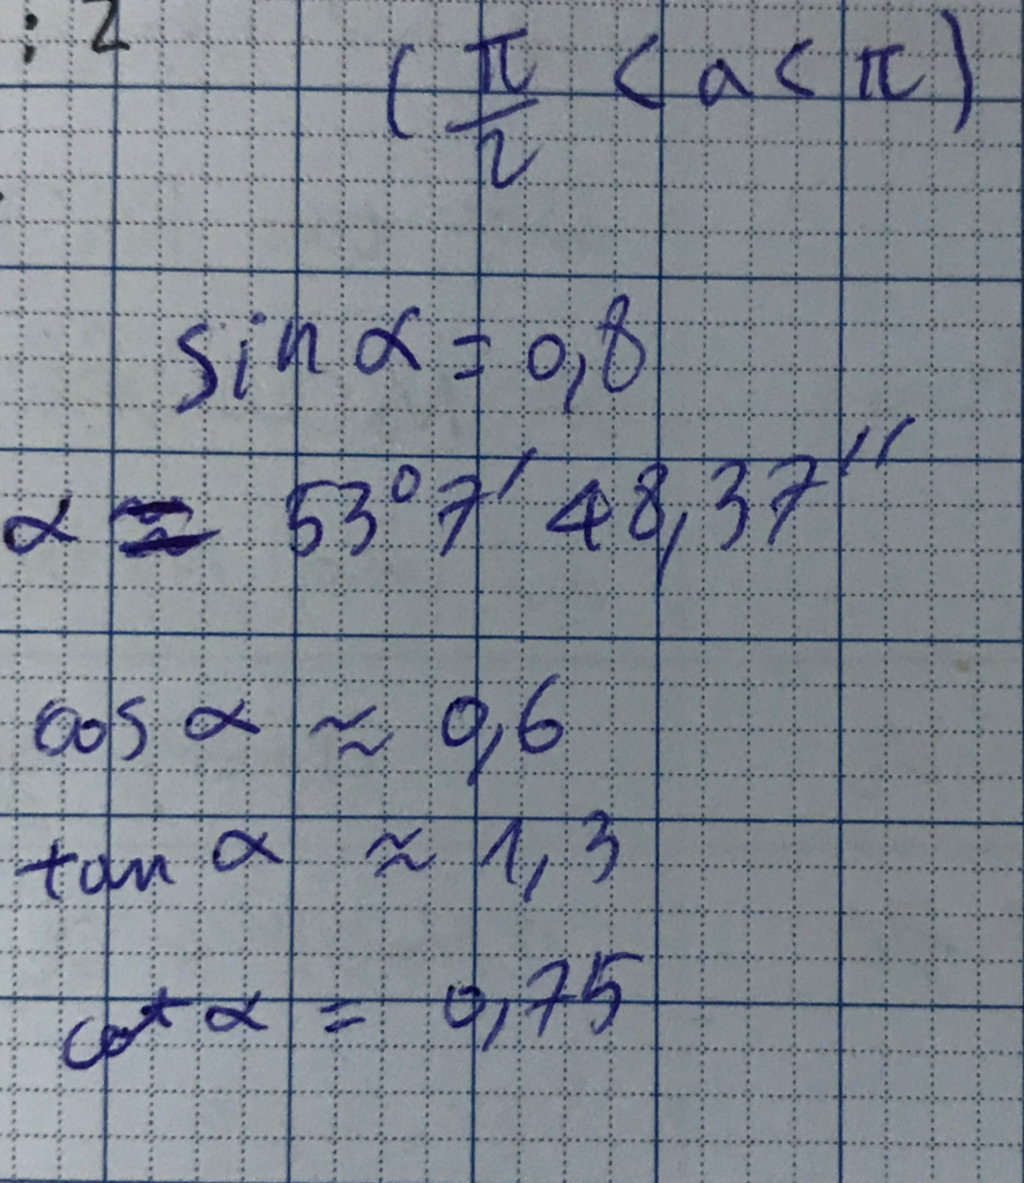 ; 2
(π/2 < a < π)
sin α = 0,8
α ≈ 53° 7' 48,37"
cos α ≈ 0,6
tan α ≈ 1,3
cot α = 0,75